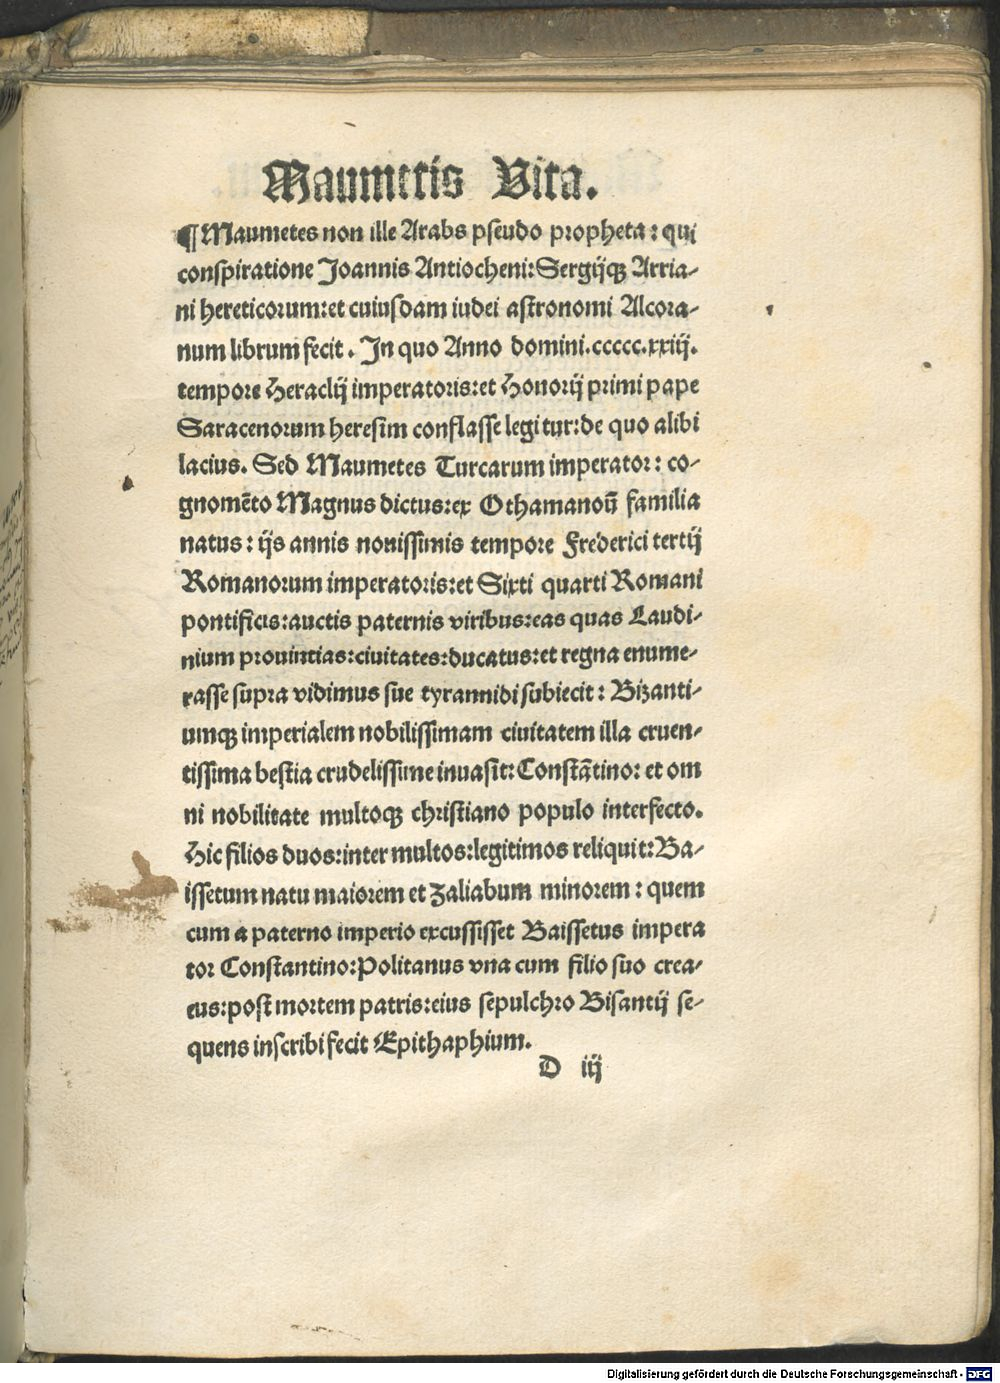 Maumetis Vita.
¶ Maumetes non ille Arabs pseudo propheta: qui
conspiratione Joannis Antiocheni: Sergijqꝫ Arria-
ni hereticorum: et cuiusdam iudei astronomi Alcora-
num librum fecit. In quo Anno domini.ccccc.xxiij.
tempore Heraclij imperatoris: et Honorij primi pape
Saracenorum heresim conflasse legitur: de quo alibi
lacius. Sed Maumetes Turcarum imperator: co-
gnomēto Magnus dictus: ex Othamanoū familia
natus: ijs annis nouissimis tempore Frederici tertij
Romanorum imperatoris: et Sixti quarti Romani
pontificis: auctis paternis viribus: eas quas Laudi-
nium prouintias: ciuitates: ducatus: et regna enume-
rasse supra vidimus sue tyrannidi subiecit: Bizanti-
umqꝫ imperialem nobilissimam ciuitatem illa cruen-
tissima bestia crudelissime inuasit: Constātino: et om
ni nobilitate multoqꝫ christiano populo interfecto.
Hic filios duos: inter multos: legitimos reliquit: Ba-
issetum natu maiorem et Zaliabum minorem: quem
cum a paterno imperio excussisset Baissetus impera
tor Constantino: Politanus vna cum filio suo crea-
tus: post mortem patris: eius sepulchro Bisantij se-
quens inscribi fecit Epithaphium.
D iij
Digitalisierung gefördert durch die Deutsche Forschungsgemeinschaft - DFG